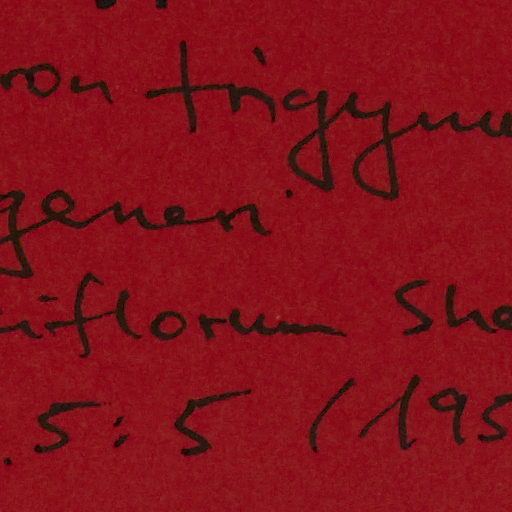 ron trigynu
generi
iflorum She
.5: 5 (195